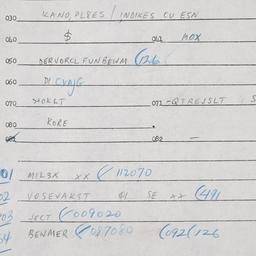 030 KANO, PLBES / INDIKES CU ESN
040 $ 041 MOX
050 DERVORCL FUNBEWM (126
060 DI CVDJG
070 HOKLT 071 -QTREJSLT S
080 KORE
082 -
01 MILBX XX ( 112070
02 VOSEVAKST 01 SE XX (491
03 JECT ( 009020
04 BENMER ( 087080 (092(126